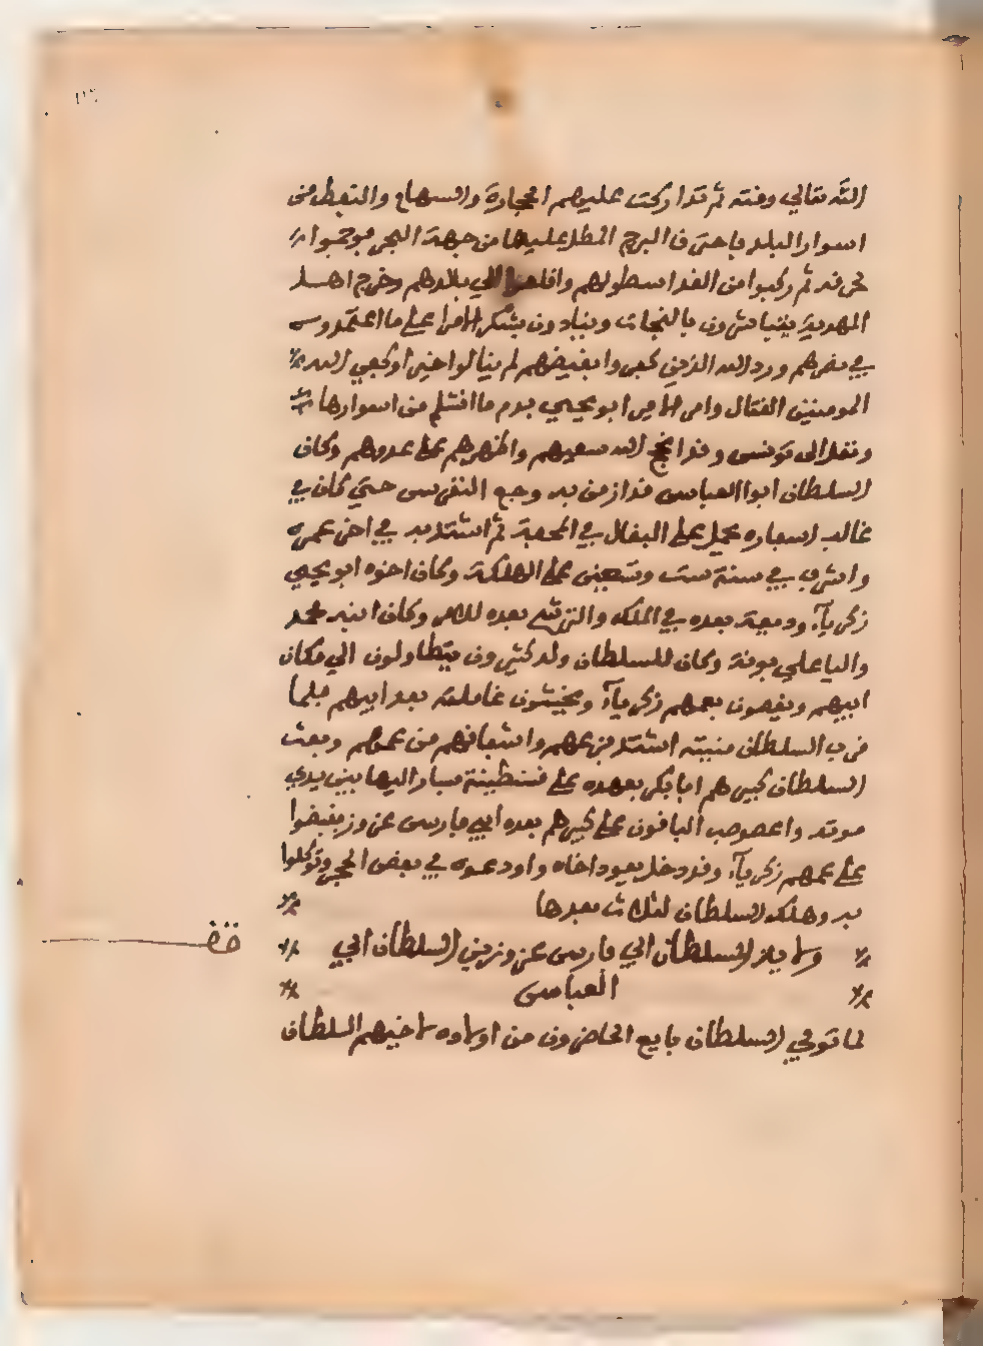 الله تعالى وفته ثم تداركت عليهم الحجارة والسهام والنفط من
اسوار البلد فاحترق البرج المطل عليها من جهة البحر فوجموا
لحرقه ثم ركبوا من الغد اسطولهم واقلعوا الي بلادهم وخرج اهل
المهدية يتباشرون بالنجاة وينادون بشكر الامرا علي ما اعتمدوه
في نصرهم ورد الله الذين كفروا بغيضهم لم ينالوا خيرا وكفي الله
المومنين القتال وامر الامير ابو يحيي برم ما انثلم من اسوارها
وقفل الى تونس وقد انجح الله سعيهم واظهرهم على عدوهم وكان
السلطان ابوا العباس قد ازمن به وجع النقرس حتي كان في
غالب اسفاره يحمل علي البغال في المحفة ثم اشتد به في اخر عمره
واشرف في سنة ست وتسعين على الهلكة وكان اخوه ابو يحيي
زكرياء وديعة بعده في الملك والترشح بعده للامر وكان ابنه محمد
واليا علي بونة وكان للسلطان ولد كثيرون يتطاولون الي مكان
ابيهم ويغصون بعمهم زكرياء ويخشون غايلته بعد ابيهم فلما
قرب السلطان منيته اشتد جزعهم واشفاقهم من عمهم وبعث
السلطان كبيرهم ابا بكر بعهده على قسنطينة فسار اليها بين يدي
موته واعصوصب الباقون على كبيرهم بعده ابي فارس عزوز فقبضوا
على عمهم زكرياء وقد دخل يعود اخاه واودعوه في بعض الحجر وتوكلوا
به وهلك السلطان لثلاث بعدها
ولاية السلطان ابي فارس عزوز بن السلطان ابي
العباس
لما توفي السلطان بايع الحاضرون من اولاده لاخيهم السلطان